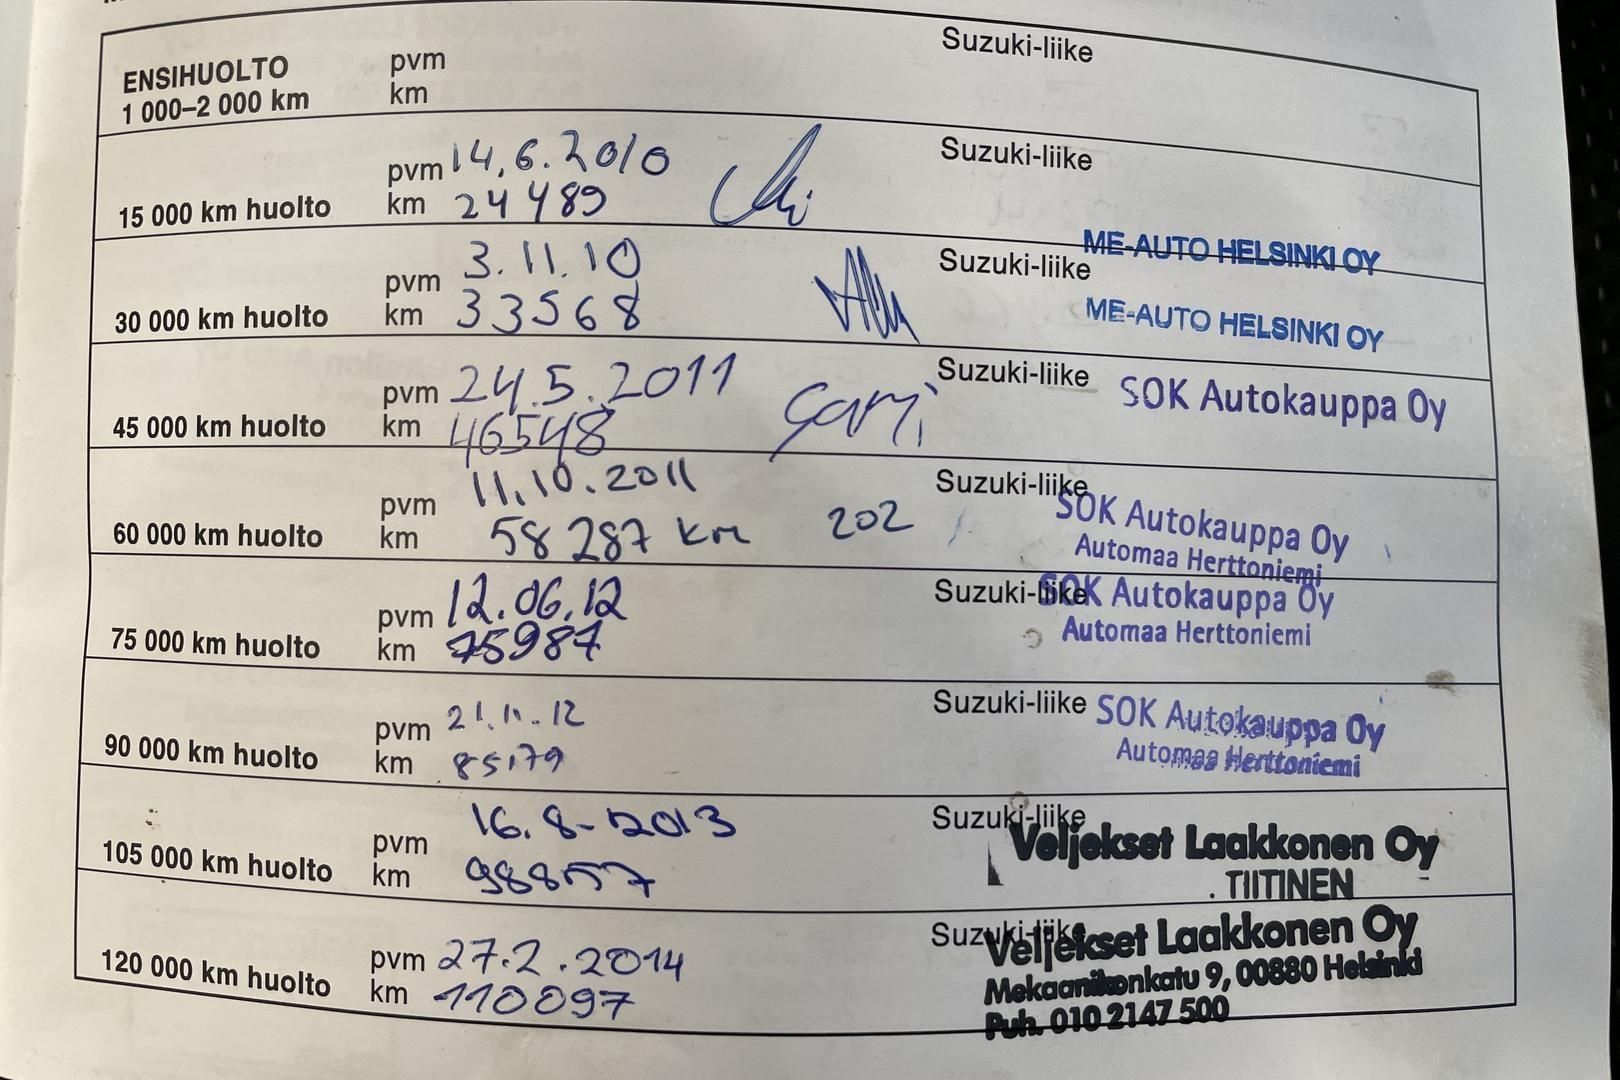 ENSIHUOLTO pvm Suzuki-liike
1 000–2 000 km km
pvm 14.6.2010 Suzuki-liike
15 000 km huolto km 24489
ME-AUTO HELSINKI OY
pvm 3.11.10 Suzuki-liike
30 000 km huolto km 33568 ME-AUTO HELSINKI OY
pvm 24.5.2011 Suzuki-liike SOK Autokauppa Oy
45 000 km huolto km 46548
pvm 11.10.2011 Suzuki-liike SOK Autokauppa Oy
60 000 km huolto km 58 287 km 202 Automaa Herttoniemi
pvm 12.06.12 Suzuki-liike SOK Autokauppa Oy
75 000 km huolto km 75987 Automaa Herttoniemi
pvm 21.11.12 Suzuki-liike SOK Autokauppa Oy
90 000 km huolto km 85179 Automaa Herttoniemi
pvm 16.8-2013 Suzuki-liike Veljekset Laakkonen Oy
105 000 km huolto km 98857 TIITINEN
pvm 27.2.2014 Suzuki-liike Veljekset Laakkonen Oy
120 000 km huolto km 110097 Mekaanikonkatu 9, 00880 Helsinki
Puh. 010 2147 500